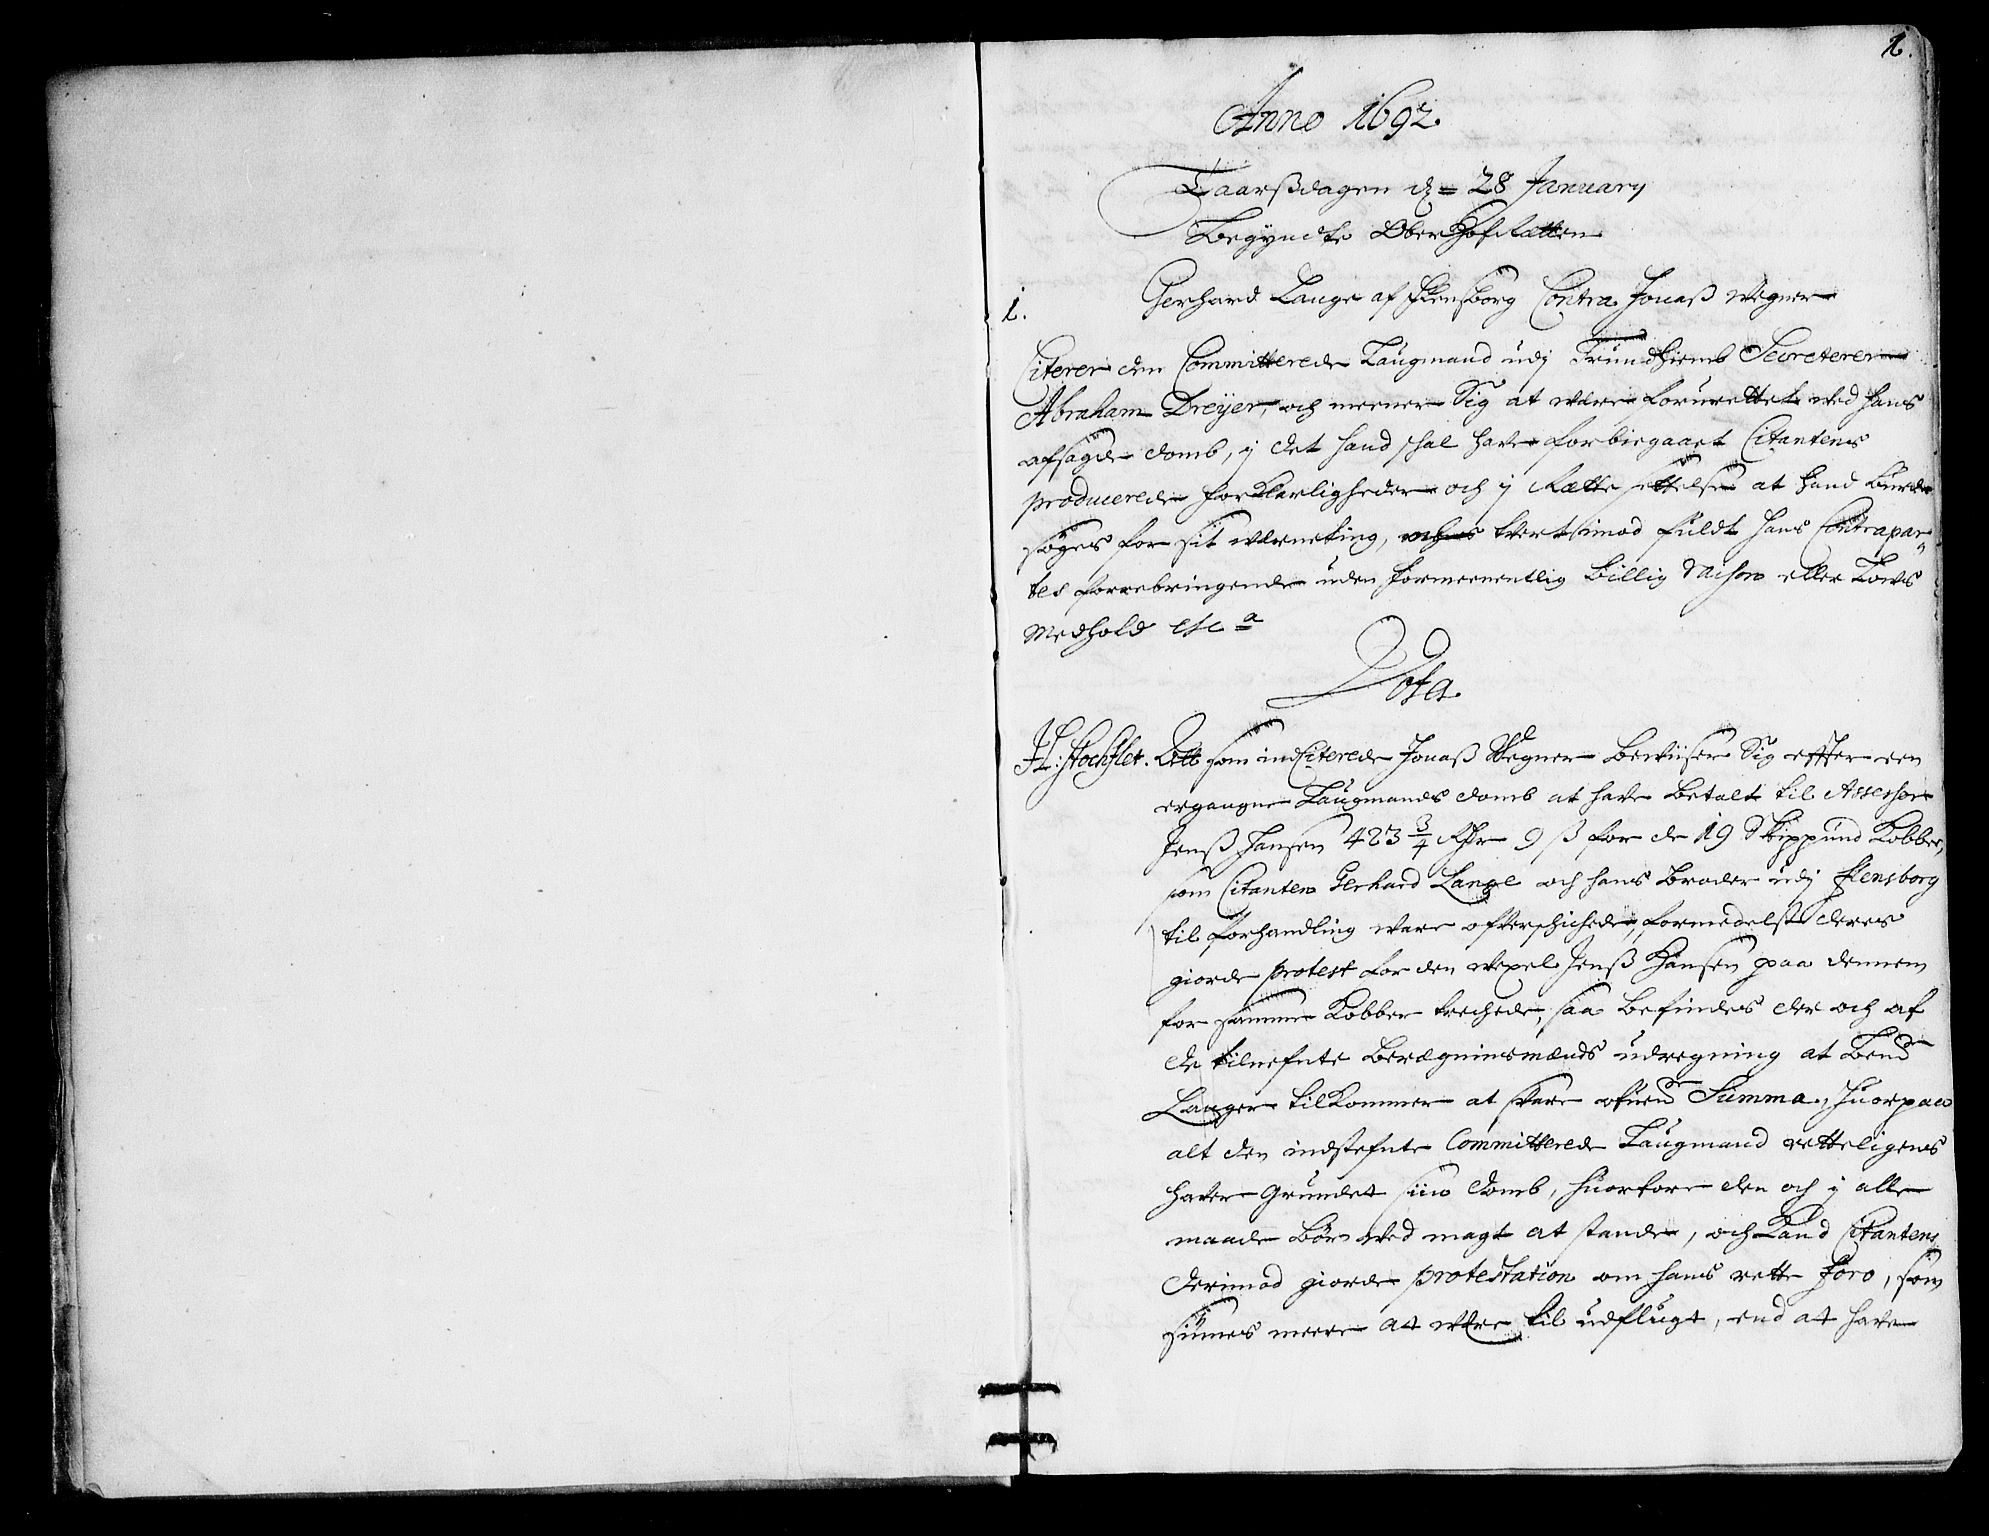 1.
Anno 1692.
Taarsdagen d= 28 January
Begyndte OberHofRetten
1.
Gerhard Lange af Flensborg Contra Jonaß Wegner
Citerer den Committerede Laugmand udj Trundhiemb Secreterer
Abraham Dreyer, och meener Sig at være foruretted ved hans
afsagde domb, j det hand schal hafve forbiegaaet Citantens
producerede forklarligheder och j Rette settelse at hand burde
søges for sit værneting, tvertimod fuldt hans Contrapar-
tes forrebringende uden formeenentlig billig Raison eller Lovs
Medhold etc a
Vota.
H: Stochflet. Som indCiterede Jonaß Wegner beviiser Sig effter een
ergangne Laugmands domb at have betalt til Assessor
Jenß Hansen 423 3/4 Rdr 9 ß for de 19 Skippund Kobber,
som Citanten Gerhard Lange och hans Broder udj Flensborg
til forhandling vare ofverschichede, formedelst deres
giorde protest for den vexel Jenß Hansen paa dennem
for samme Kobber trechede, saa befindes der och af
de tilnefnte beregninsmænds udregning at bemd
Langer tilkommer at svare Summa, huorpaa
alt den indstefnte Committerede Laugmand retteligens
hafver grundet siin domb, huorfore den och j alle
maade bør ved magt at stande, och kand Citantens
derimod giorde protestation om hans rette foro, som
siunes meere at være til udflugt, end at hafve